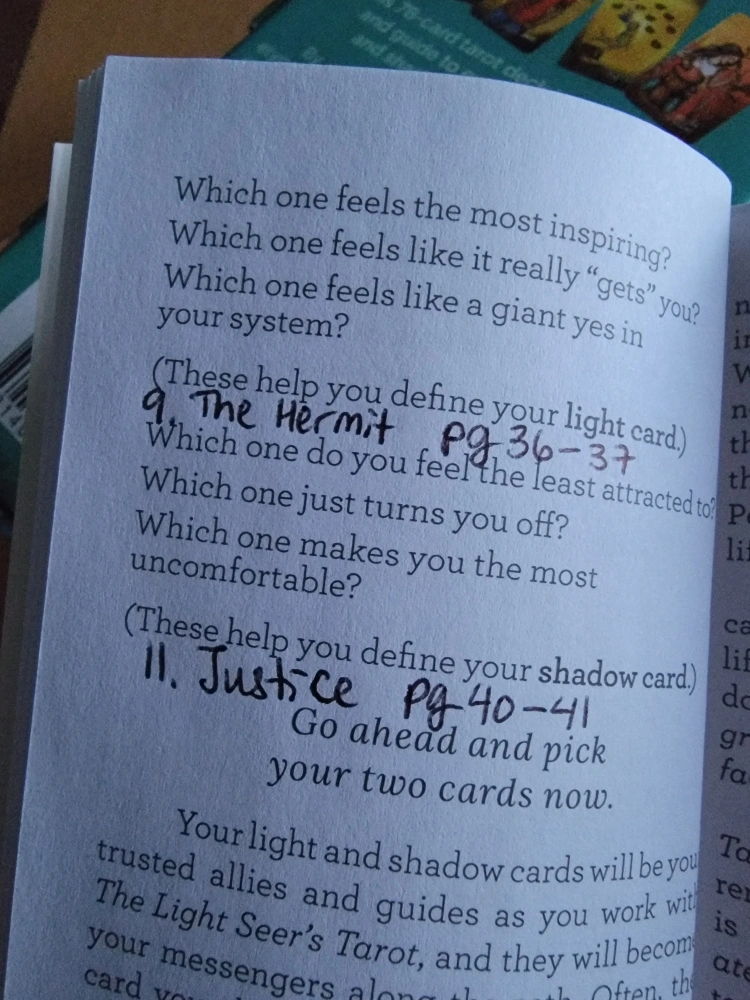 78-card tarot deck
and guide to
and
Which one feels the most inspiring?
Which one feels like it really “gets” you?
Which one feels like a giant yes in
your system?
(These help you define your light card.)
9. The Hermit pg 36-37
Which one do you feel the least attracted to?
Which one just turns you off?
Which one makes you the most
uncomfortable?
(These help you define your shadow card.)
11. Justice pg 40-41
Go ahead and pick
your two cards now.
Your light and shadow cards will be you
trusted allies and guides as you work wit
The Light Seer’s Tarot, and they will becom
your messengers along the path. Often, the
card